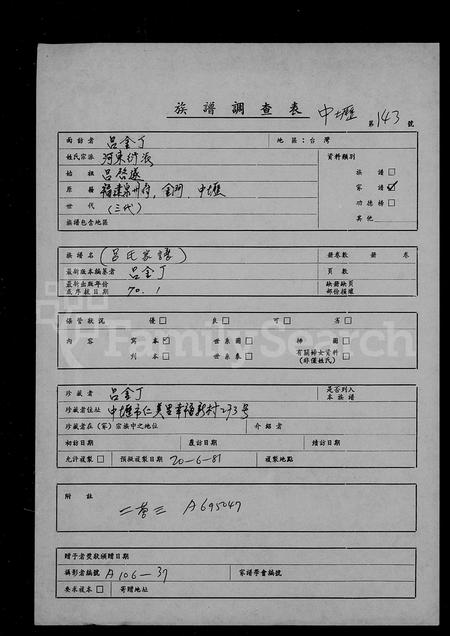 族譜調查表 中壢 第143號
面訪者 呂金丁 地區：台灣
姓氏宗派 河東衍派 資料類別
始祖 呂啓遂 族譜□
原籍 福建泉州府，金門，中壢 家譜☑
世代 (三代) 功德榜□
族譜包含地區 其他
族譜名 (呂氏家譜) 冊卷數 冊 卷
最新版本編纂者 呂金丁 頁數
最新出版年份或序拔日期 70.1 缺冊缺頁部份損壞
保管狀況 優□ 良□ 可□ 劣□
內容 寫本☑ 世系圖□ 掃圖□
刊本□ 世系表□ 有關婦女資料(非僅姓氏)□
珍藏者 呂金丁 是否列入本族譜
珍藏者住址 中壢市仁美里幸福新村273号
珍藏者在(家)宗族中之地位 介紹者
初訪日期 覆訪日期 續訪日期
允許複製□ 預擬複製日期 20-6-81 複製地點
附註
二苍三 A695047
贈予者獎狀積贈日期
攝影者編號 A106-37 家譜學會編號
要求複本□ 寄贈地址
FamilySearch